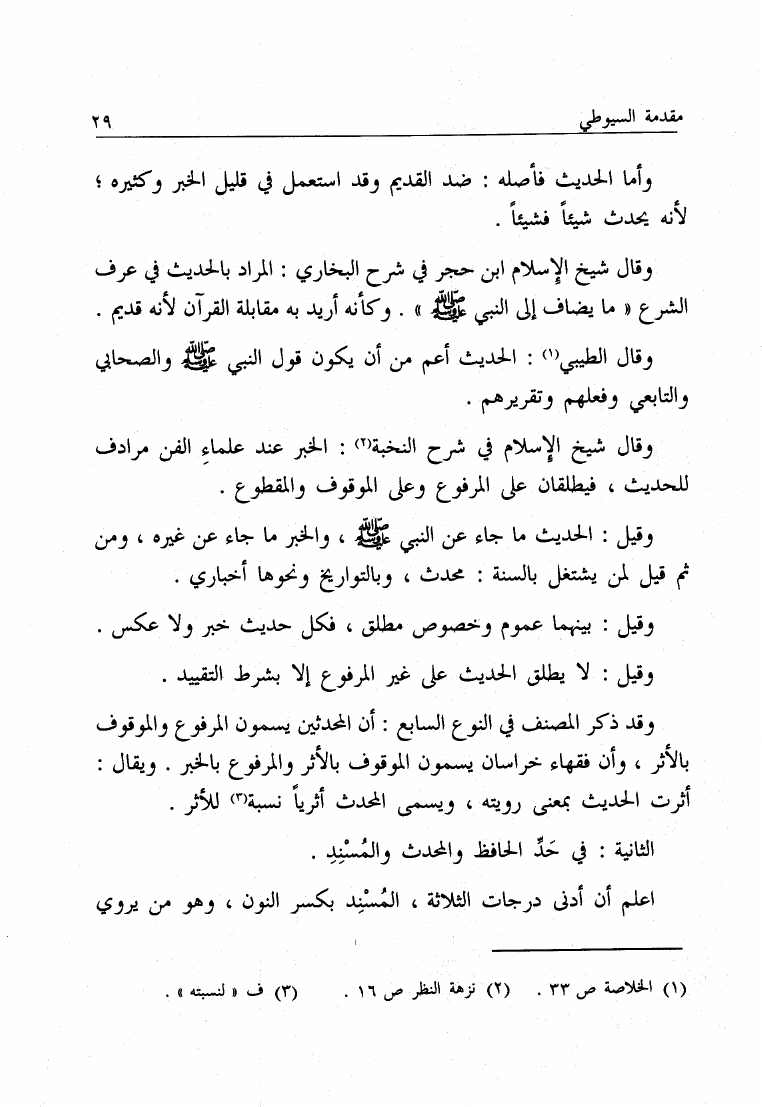 مقدمة السيوطي ٢٩
وأما الحديث فأصله : ضد القديم وقد استعمل في قليل الخبر وكثيره ؛
لأنه يحدث شيئاً فشيئاً .
وقال شيخ الإسلام ابن حجر في شرح البخاري : المراد بالحديث في عرف
الشرع « ما يضاف إلى النبي ﷺ » . وكأنه أريد به مقابلة القرآن لأنه قديم .
وقال الطيبي(١) : الحديث أعم من أن يكون قول النبي ﷺ والصحابي
والتابعي وفعلهم وتقريرهم .
وقال شيخ الإسلام في شرح النخبة(٢) : الخبر عند علماءِ الفن مرادف
للحديث ، فيطلقان على المرفوع وعلى الموقوف والمقطوع .
وقيل : الحديث ما جاء عن النبي ﷺ ، والخبر ما جاء عن غيره ، ومن
ثم قيل لمن يشتغل بالسنة : محدث ، وبالتواريخ ونحوها أخباري .
وقيل : بينهما عموم وخصوص مطلق ، فكل حديث خبر ولا عكس .
وقيل : لا يطلق الحديث على غير المرفوع إلا بشرط التقييد .
وقد ذكر المصنف في النوع السابع : أن المحدثين يسمون المرفوع والموقوف
بالأثر ، وأن فقهاء خراسان يسمون الموقوف بالأثر والمرفوع بالخبر . ويقال :
أثرت الحديث بمعنى رويته ، ويسمى المحدث أثرياً نسبة(٣) للأثر .
الثانية : في حَدِّ الحافظ والمحدث والمُسْنِدِ .
اعلم أن أدنى درجات الثلاثة ، المُسْنِد بكسر النون ، وهو من يروي
(١) الخلاصة ص ٣٣ . (٢) نزهة النظر ص ١٦ . (٣) ف « لنسبته » .